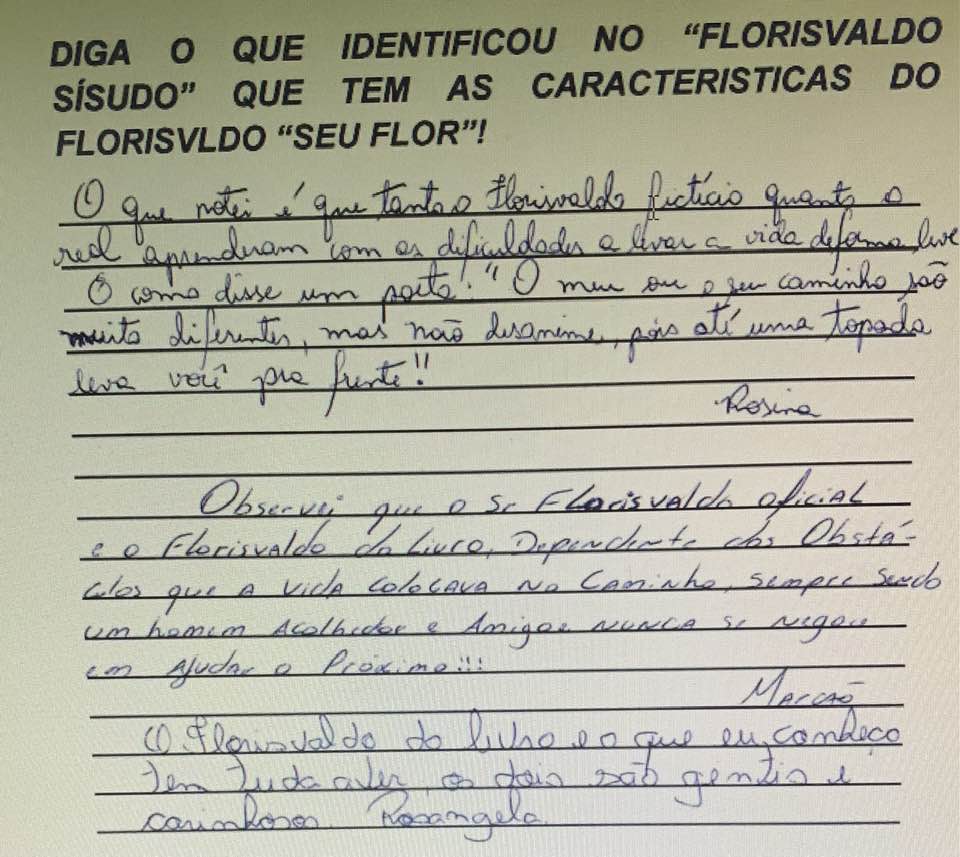 DIGA O QUE IDENTIFICOU NO “FLORISVALDO
SÍSUDO” QUE TEM AS CARACTERISTICAS DO
FLORISVLDO “SEU FLOR”!
O que notei é que tanto o Florisvaldo fictício quanto o
real aprenderam com as dificuldades a levar a vida de forma leve
É como disse um poeta: "O meu ou o seu caminho são
muito diferentes, mas não desanime, pois até uma topada
leva você pra frente!!
Rosina
Observei que o Sr Florisvaldo oficial
e o Florisvaldo do Livro, Dependente dos Obstá-
culos que a vida colocava no Caminho, sempre sendo
um homem Acolhedor e Amigo e nunca se negou
em Ajudar o Próximo!!!
Marcão
O Florisvaldo do livro e o que eu conheço
tem tudo aver, os dois são gentis e
carinhosos. Rosangela